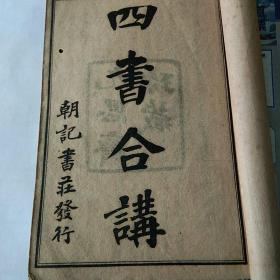 四書合講
朝記書莊發行